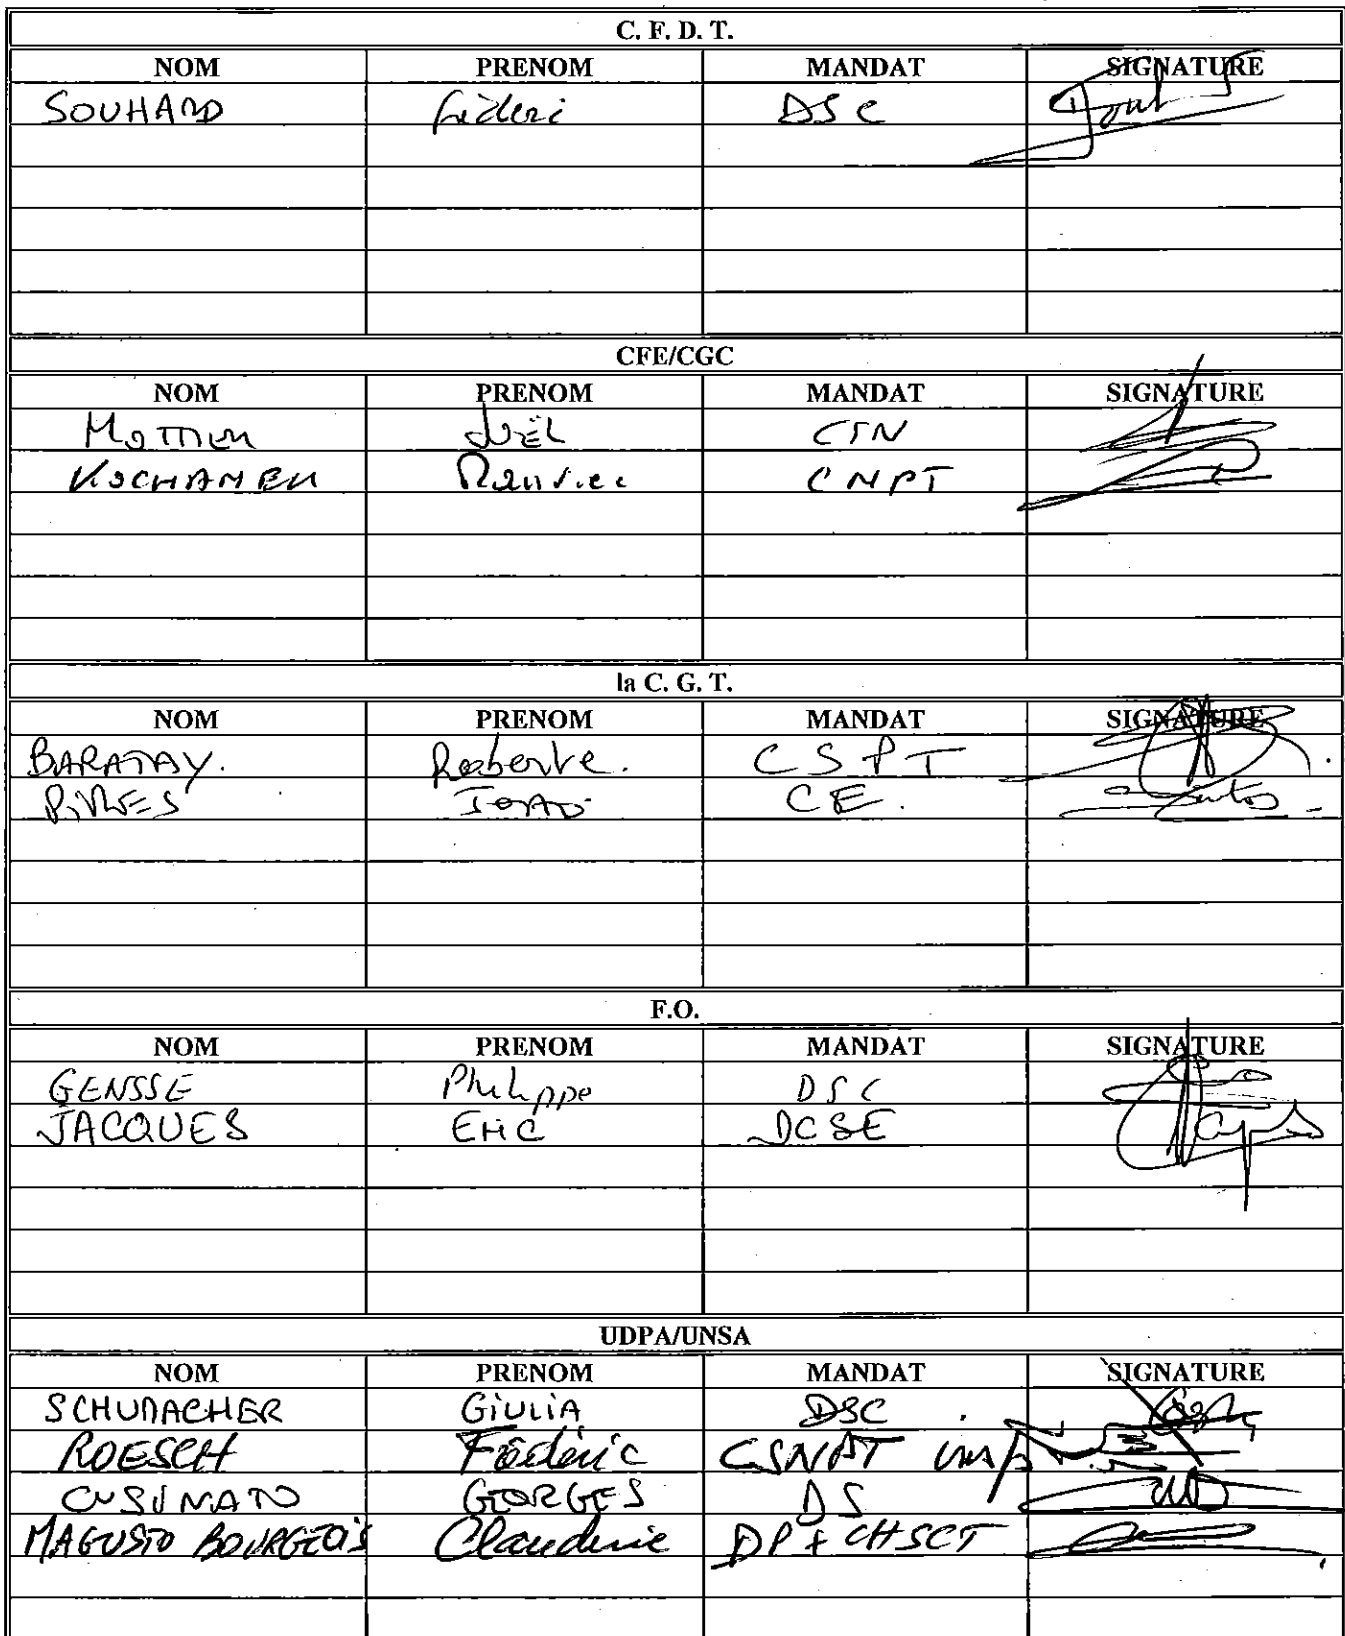 C. F. D. T.
NOM PRENOM MANDAT SIGNATURE
SOUHARD Fréderic DSC
CFE/CGC
NOM PRENOM MANDAT SIGNATURE
JOËL CTN
CNPT
la C. G. T.
NOM PRENOM MANDAT SIGNATURE
BARATAY. Roberte. CSPT
CE.
F.O.
NOM PRENOM MANDAT SIGNATURE
GENSSE Philippe DSC
JACQUES ERIC DCSE
UDPA/UNSA
NOM PRENOM MANDAT SIGNATURE
SCHUMACHER GiULiA DSC
ROESCH Fréderic CSNPT
CUSIMATO GEORGES DS
MAGUSTO BOURGEOiS Claudine DP + CHSCT